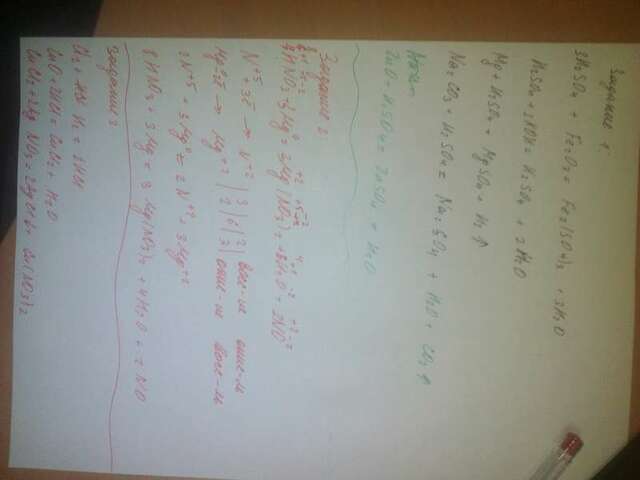 Задание 1:
3H₂SO₄ + Fe₂O₃ = Fe₂(SO₄)₂ + 3H₂O
H₂SO₄ + 2KOH = K₂SO₄ + 2H₂O
Mg + H₂SO₄ = MgSO₄ + H₂↑
Na₂CO₃ + H₂SO₄ = Na₂SO₄ + H₂O + CO₂↑
ZnO + H₂SO₄ = ZnSO₄ + H₂O
Задание 2:
8HNO₃ + 3Mg⁰ = 3Mg(NO₃)₂ + 4H₂O + 2NO
N⁺⁵ + 3e → N⁺² | 3 | 6 | 2 | вос-ие окис-ль
Mg⁰ - 2e → Mg⁺² | 2 | 3 | окис-ие вос-ль
2N⁺⁵ + 3Mg⁰ = 2N⁺² + 3Mg⁺²
8HNO₃ + 3Mg = 3Mg(NO₃)₂ + 4H₂O + 2NO
Задание 3
Cl₂ + H₂ = 2HCl
CuO + 2HCl = CuCl₂ + H₂O
CuCl₂ + 2AgNO₃ = 2AgCl↓ + Cu(NO₃)₂